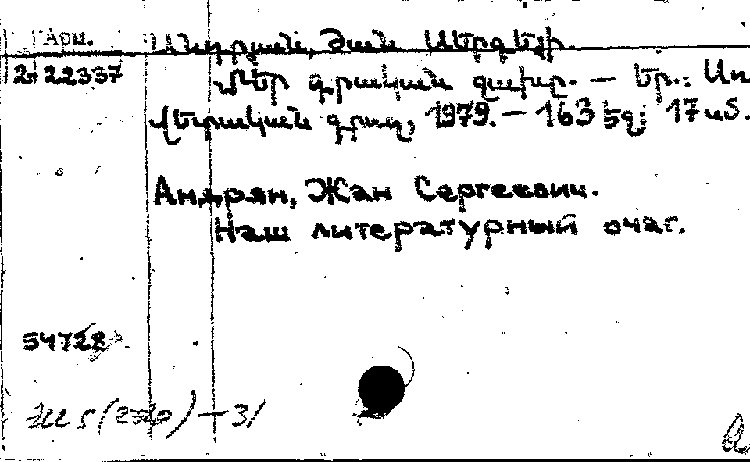 Арм.
2-22337
Անդրյան, Ժան Սերգեյի.
Մեր գրական օջախը. — Եր.: Սո
վետական գրող, 1979. — 163 էջ; 17 սմ.
Андрян, Жан Сергеевич.
Наш литературный очаг.
54728